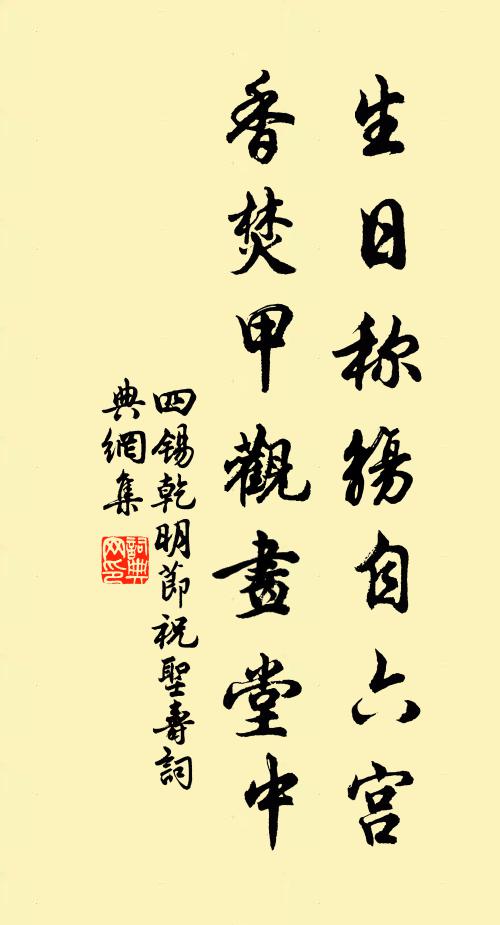 生日称觞自六宫
香焚甲觀畫堂中
四锡乾明節祝聖壽詞
典網集
詞典网印